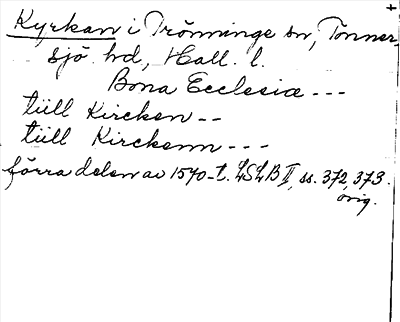 Kyrkan i Trönninge sn, Tönner-
sjö hd, Hall. l.
Bona Ecclesiæ ---
tüll Kircken --
tüll Kirckenn ---
förra delen av 1570-t. LSLB II, ss. 372, 373.
orig.